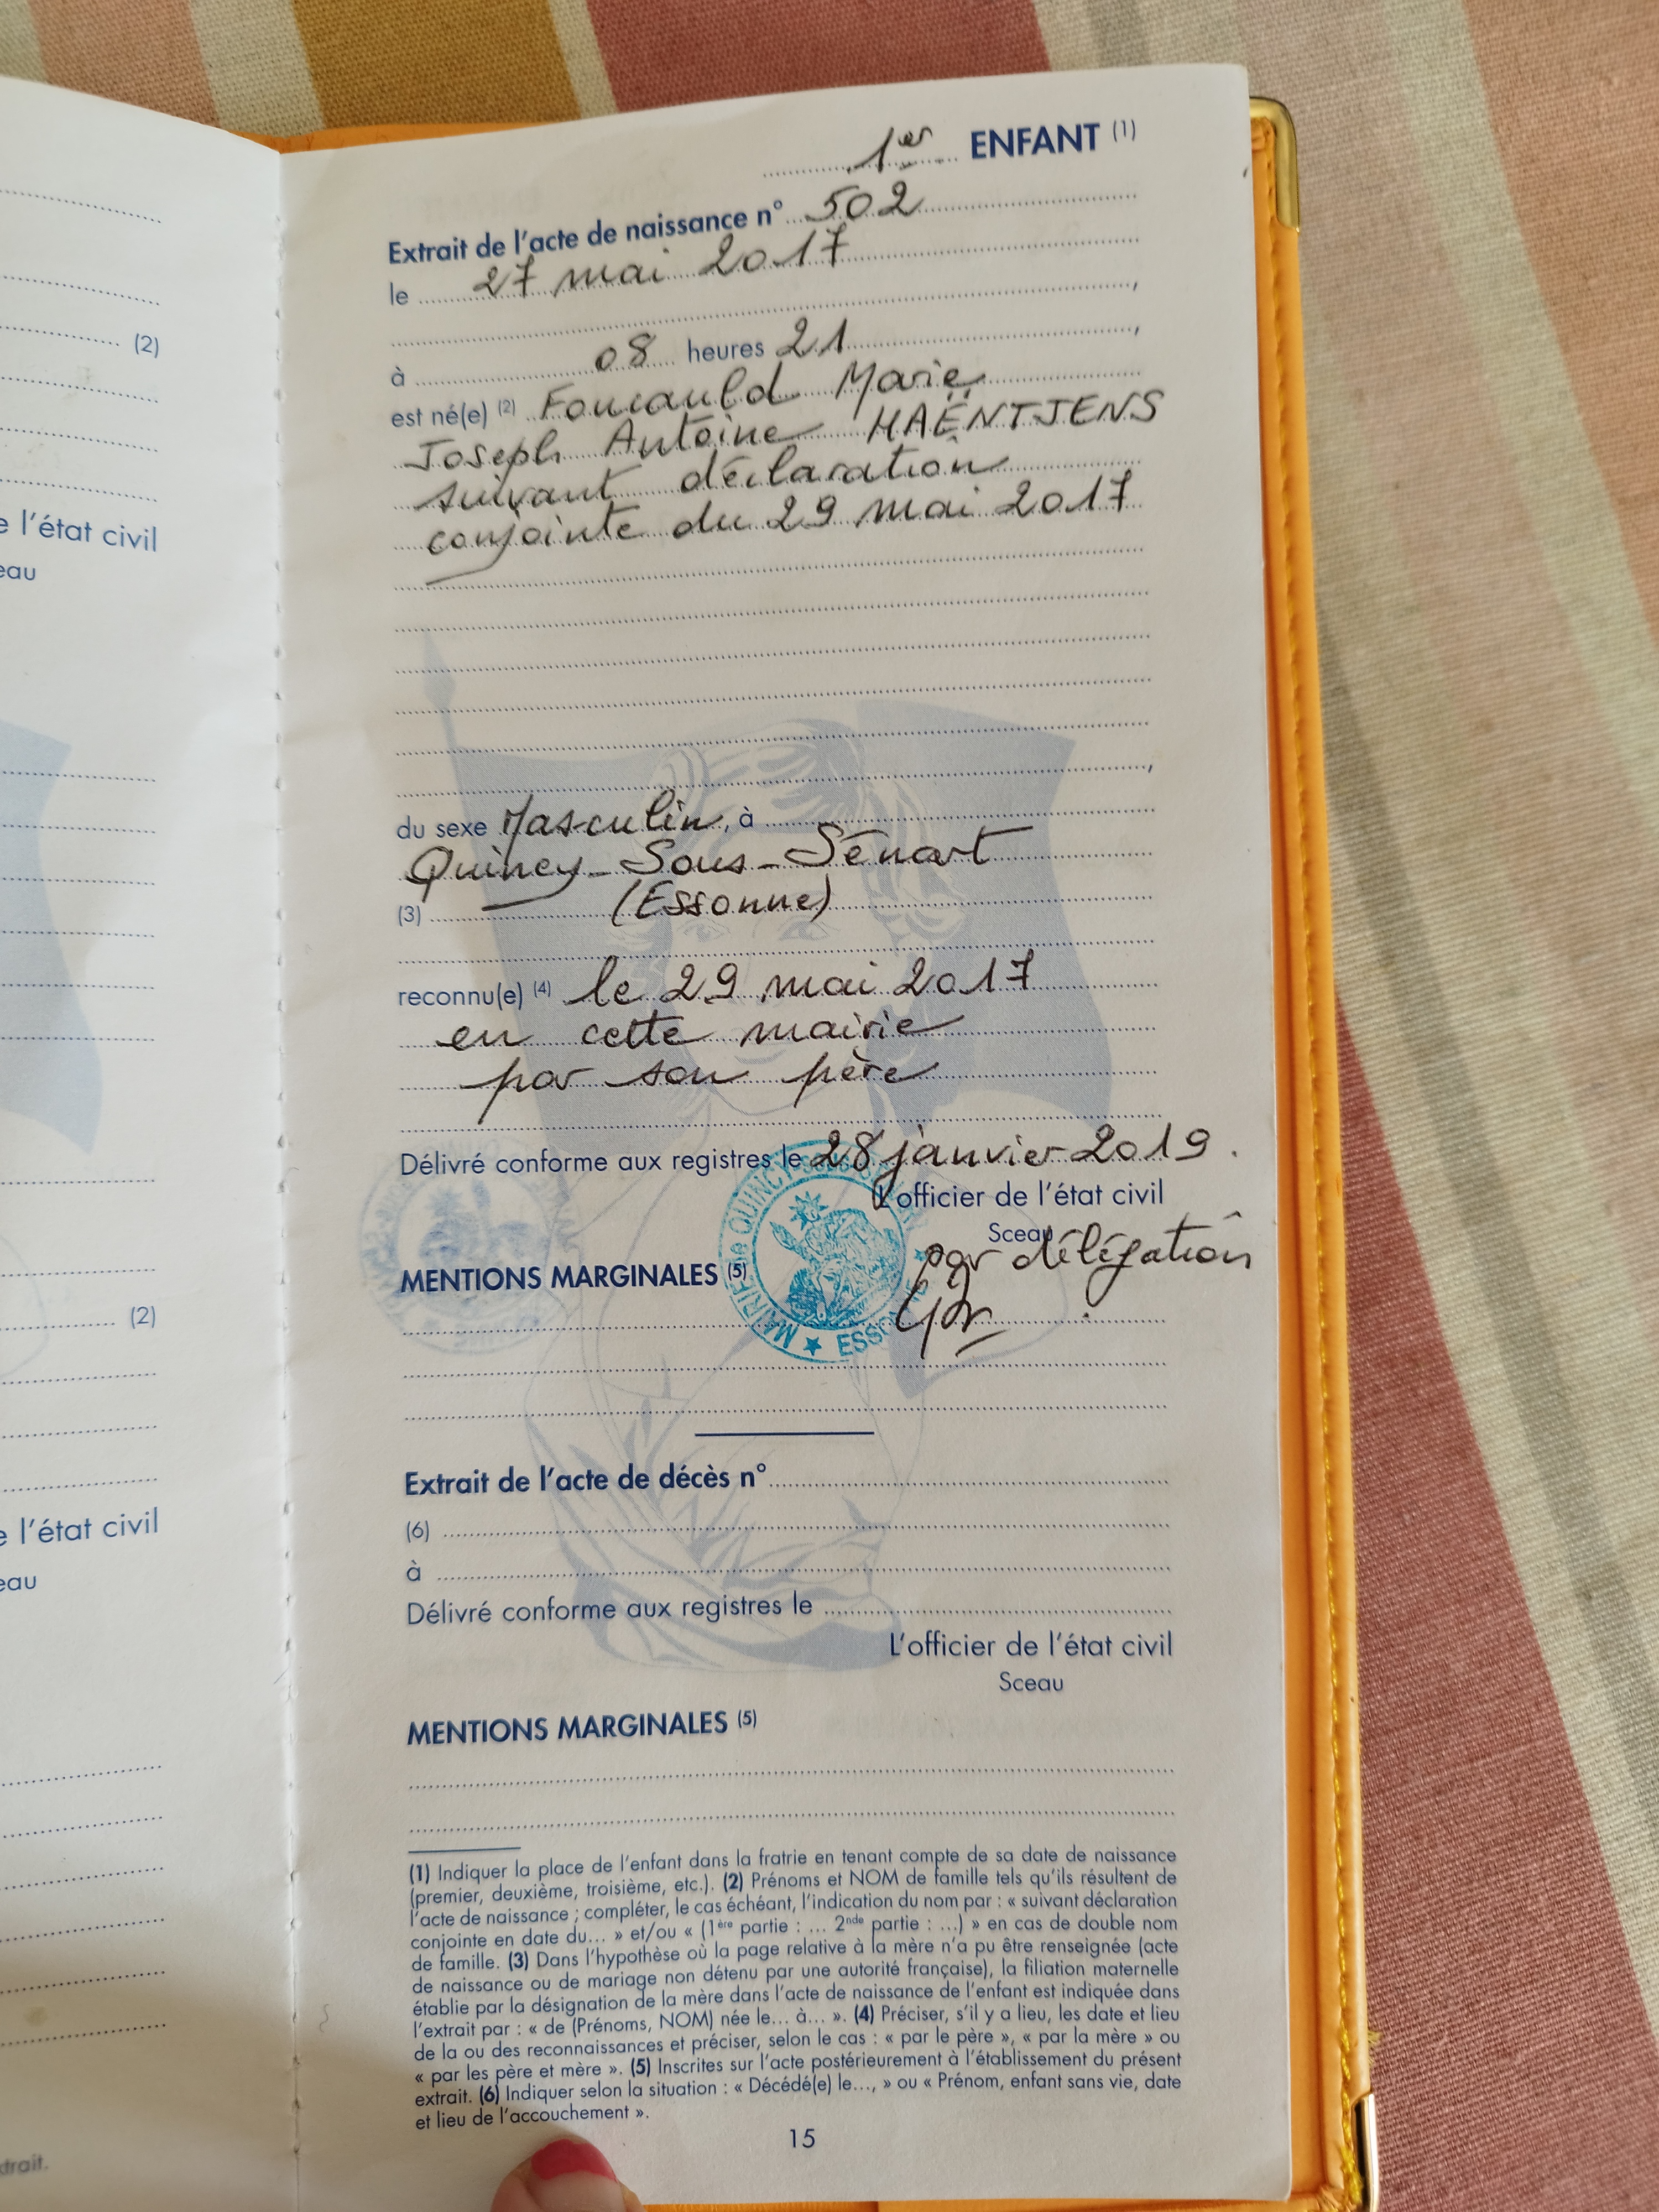 (2)
e l'état civil
eau
(2)
e l'état civil
eau
trait.
1er ENFANT (1)
Extrait de l'acte de naissance n° 502
le 27 mai 2017
,
à 08 heures 21,
est né(e) (2) Foucauld Marie
Joseph Antoine HAËNTJENS
suivant déclaration
conjointe du 29 mai 2017
,
du sexe Masculin, à
Quincy-Sous-Sénart
(3) (Essonne)
reconnu(e) (4) le 29 mai 2017
en cette mairie
par son père
Délivré conforme aux registres le 28 janvier 2019.
L'officier de l'état civil
Sceau
par délégation
MENTIONS MARGINALES (5)
MAIRIE de QUINCY-SOUS-
★ ESSONNE ★
Extrait de l'acte de décès n°
(6)
à
Délivré conforme aux registres le
L'officier de l'état civil
Sceau
MENTIONS MARGINALES (5)
(1) Indiquer la place de l'enfant dans la fratrie en tenant compte de sa date de naissance
(premier, deuxième, troisième, etc.). (2) Prénoms et NOM de famille tels qu'ils résultent de
l'acte de naissance ; compléter, le cas échéant, l'indication du nom par : « suivant déclaration
conjointe en date du... » et/ou « (1ère partie : ... 2nde partie : ...) » en cas de double nom
de famille. (3) Dans l'hypothèse où la page relative à la mère n'a pu être renseignée (acte
de naissance ou de mariage non détenu par une autorité française), la filiation maternelle
établie par la désignation de la mère dans l'acte de naissance de l'enfant est indiquée dans
l'extrait par : « de (Prénoms, NOM) née le... à... ». (4) Préciser, s'il y a lieu, les date et lieu
de la ou des reconnaissances et préciser, selon le cas : « par le père », « par la mère » ou
« par les père et mère ». (5) Inscrites sur l'acte postérieurement à l'établissement du présent
extrait. (6) Indiquer selon la situation : « Décédé(e) le..., » ou « Prénom, enfant sans vie, date
et lieu de l'accouchement ».
15